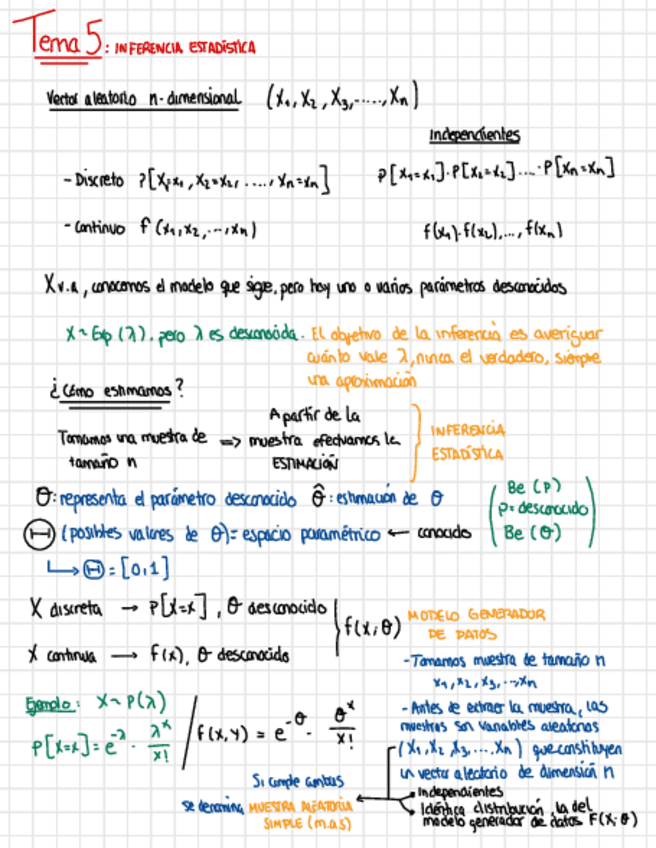 Tema 5: INFERENCIA ESTADÍSTICA
Vector aleatorio n-dimensional (X₁, X₂, X₃, ....., Xₙ)
Independientes
- Discreto P[X₁=x₁, X₂=x₂, ...., Xₙ=xₙ]
P[X₁=x₁]·P[X₂=x₂]....·P[Xₙ=xₙ]
- Continuo f(x₁,x₂,...,xₙ)
f(x₁)·f(x₂),..., f(xₙ)
X v.a, conocemos el modelo que sigue, pero hay uno o varios parámetros desconocidos
X~Exp(λ), pero λ es desconocida. El objetivo de la inferencia es averiguar
cuánto vale λ, nunca el verdadero, siempre
una aproximación
¿Cómo estimamos?
Tomamos una muestra de
tamaño n
=>
A partir de la
muestra efectuamos la
ESTIMACIÓN
INFERENCIA
ESTADÍSTICA
θ: representa el parámetro desconocido θ̂: estimación de θ
Ⓗ (posibles valores de θ)= espacio paramétrico ← conocido
Be (P)
P= desconocido
Be (θ)
↳ Ⓗ = [0,1]
X discreta → P[X=x], θ desconocido
X continua → f(x), θ desconocido
f(x;θ)
MODELO GENERADOR
DE DATOS
- Tomamos muestra de tamaño n
x₁, x₂, x₃, ...xₙ
- Antes de extraer la muestra, las
muestras son variables aleatorias
(X₁, X₂, X₃, ..., Xₙ) que constituyen
un vector aleatorio de dimensión n
• Independientes
• Idéntica distribución, la del
modelo generador de datos F(X;θ)
Ejemplo: X~P(λ)
P[X=x] = e^-λ · λ^x/x!
f(x,y) = e^-θ · θ^x/x!
Si cumple ambas
se denomina MUESTRA ALEATORIA
SIMPLE (m.a.s)